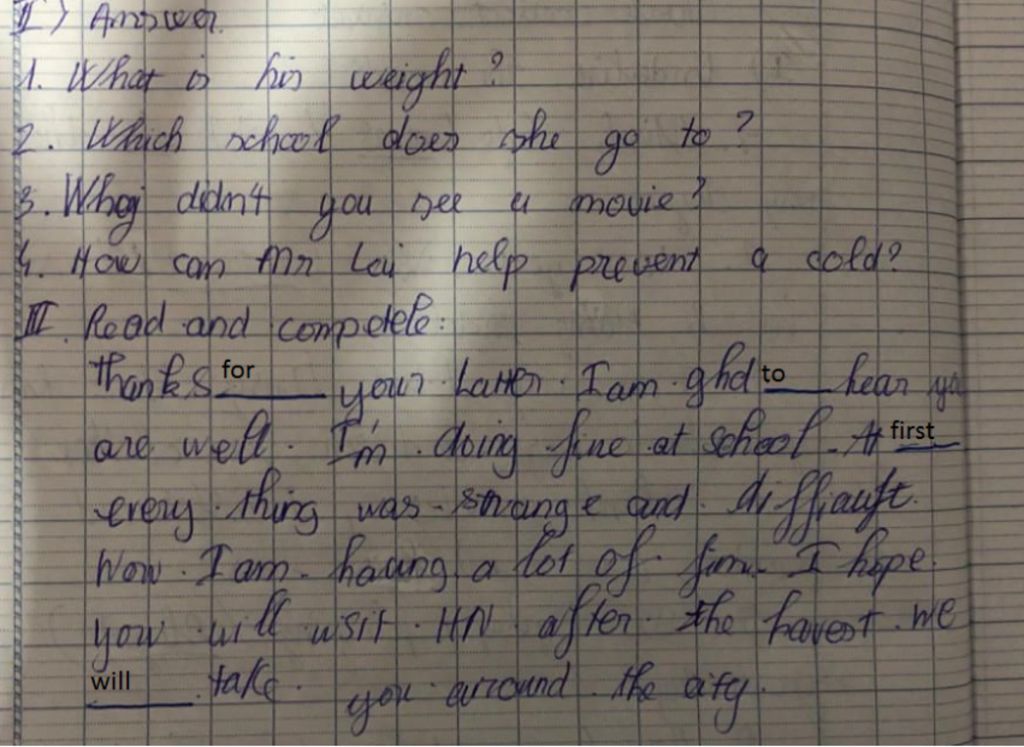 II) Answer.
1. What is his weight?
2. Which school does she go to?
3. Why didn't you see a movie?
4. How can Mr Lai help prevent a cold?
III. Read and compelele:
Thanks for your Latter. I am glad to hear you
are well. I'm doing fine at school. At first
every thing was strange and difficult.
Now I am having a lot of fun. I hope
you will visit HN after the havest. We
will take you arround the city.